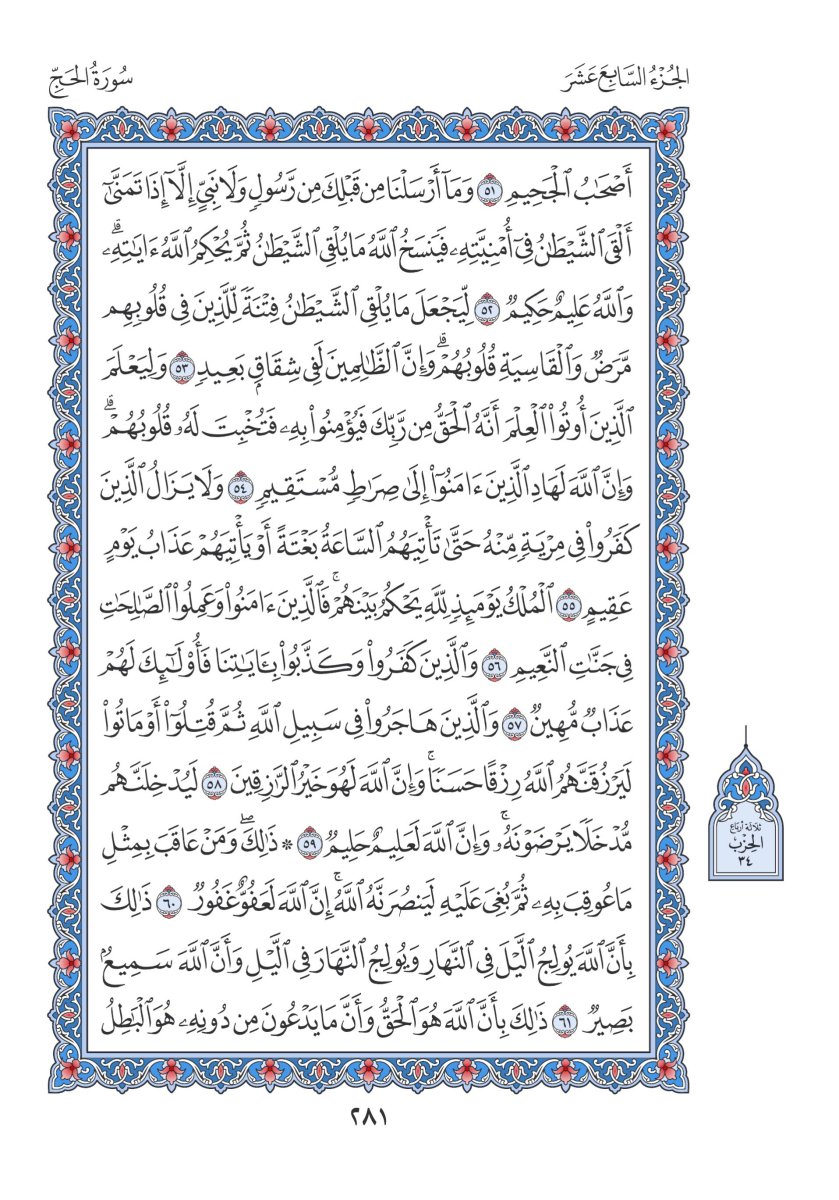 الجُزْءُ السَّابِعَ عَشَرَ
سُورَةُ الحَجِّ
أَصْحَٰبُ ٱلْجَحِيمِ ٥١ وَمَآ أَرْسَلْنَا مِن قَبْلِكَ مِن رَّسُولٍ وَلَا نَبِيٍّ إِلَّآ إِذَا تَمَنَّىٰٓ
أَلْقَى ٱلشَّيْطَٰنُ فِىٓ أُمْنِيَّتِهِۦ فَيَنسَخُ ٱللَّهُ مَا يُلْقِى ٱلشَّيْطَٰنُ ثُمَّ يُحْكِمُ ٱللَّهُ ءَايَٰتِهِۦۗ
وَٱللَّهُ عَلِيمٌ حَكِيمٌ ٥٢ لِّيَجْعَلَ مَا يُلْقِى ٱلشَّيْطَٰنُ فِتْنَةً لِّلَّذِينَ فِى قُلُوبِهِم
مَّرَضٌ وَٱلْقَاسِيَةِ قُلُوبُهُمْۗ وَإِنَّ ٱلظَّٰلِمِينَ لَفِى شِقَاقٍۭ بَعِيدٍ ٥٣ وَلِيَعْلَمَ
ٱلَّذِينَ أُوتُوا۟ ٱلْعِلْمَ أَنَّهُ ٱلْحَقُّ مِن رَّبِّكَ فَيُؤْمِنُوا۟ بِهِۦ فَتُخْبِتَ لَهُۥ قُلُوبُهُمْۗ
وَإِنَّ ٱللَّهَ لَهَادِ ٱلَّذِينَ ءَامَنُوٓا۟ إِلَىٰ صِرَٰطٍ مُّسْتَقِيمٍ ٥٤ وَلَا يَزَالُ ٱلَّذِينَ
كَفَرُوا۟ فِى مِرْيَةٍ مِّنْهُ حَتَّىٰ تَأْتِيَهُمُ ٱلسَّاعَةُ بَغْتَةً أَوْ يَأْتِيَهُمْ عَذَابُ يَوْمٍ
عَقِيمٍ ٥٥ ٱلْمُلْكُ يَوْمَئِذٍ لِّلَّهِ يَحْكُمُ بَيْنَهُمْۚ فَٱلَّذِينَ ءَامَنُوا۟ وَعَمِلُوا۟ ٱلصَّٰلِحَٰتِ
فِى جَنَّٰتِ ٱلنَّعِيمِ ٥٦ وَٱلَّذِينَ كَفَرُوا۟ وَكَذَّبُوا۟ بِـَٔايَٰتِنَا فَأُو۟لَٰٓئِكَ لَهُمْ
عَذَابٌ مُّهِينٌ ٥٧ وَٱلَّذِينَ هَاجَرُوا۟ فِى سَبِيلِ ٱللَّهِ ثُمَّ قُتِلُوٓا۟ أَوْ مَاتُوا۟
لَيَرْزُقَنَّهُمُ ٱللَّهُ رِزْقًا حَسَنًاۚ وَإِنَّ ٱللَّهَ لَهُوَ خَيْرُ ٱلرَّٰزِقِينَ ٥٨ لَيُدْخِلَنَّهُم
مُّدْخَلًا يَرْضَوْنَهُۥۚ وَإِنَّ ٱللَّهَ لَعَلِيمٌ حَلِيمٌ ٥٩ * ذَٰلِكَۖ وَمَنْ عَاقَبَ بِمِثْلِ
مَا عُوقِبَ بِهِۦ ثُمَّ بُغِىَ عَلَيْهِ لَيَنصُرَنَّهُ ٱللَّهُۚ إِنَّ ٱللَّهَ لَعَفُوٌّ غَفُورٌ ٦٠ ذَٰلِكَ
بِأَنَّ ٱللَّهَ يُولِجُ ٱلَّيْلَ فِى ٱلنَّهَارِ وَيُولِجُ ٱلنَّهَارَ فِى ٱلَّيْلِ وَأَنَّ ٱللَّهَ سَمِيعٌۢ
بَصِيرٌ ٦١ ذَٰلِكَ بِأَنَّ ٱللَّهَ هُوَ ٱلْحَقُّ وَأَنَّ مَا يَدْعُونَ مِن دُونِهِۦ هُوَ ٱلْبَٰطِلُ
ثلاثة أرباع
الحِزْب
٣٤
٢٨١